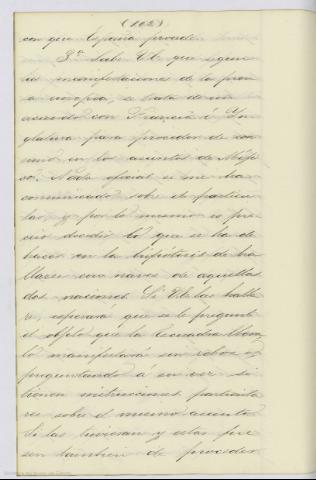 (102)
con que España procede
3º Sabe VE que segun
las manifestaciones de la pren
sa europea, se trata de un
acuerdo con Francia é In
glaterra para proceder de co
mun en los asuntos de Méji
co. Nada oficial se me ha
comunicado sobre el particu
lar, y por lo mismo es pre
ciso decidir lo que se ha de
hacer en la hipótesis de ha
llarse con naves de aquellas
dos naciones. Si VE las halla
re, esperará que se le pregunte
el objeto que la Escuadra lleva
lo manifestará sin rebozo
preguntando á su vez si
tienen instrucciones particula
res sobre el mismo asunto
Si las tuvieran y estas fue
sen tambien de proceder